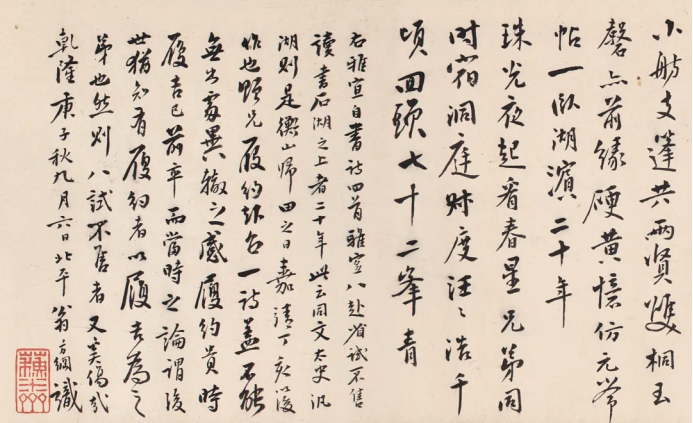 小舫支篷共兩賢雙桐玉
磬亦前緣硬黃憶仿元常
帖一臥湖濱二十年
珠光夜起看春星兄弟同
時宿洞庭叔度汪〻浩千
頃回頭七十二峯青
右雅宜自書詩四首雅宜八赴省試不售
讀書石湖之上者二十年此云同文太史汎
湖則是衡山歸田之日嘉靖丁亥以後
作也題兄履約外台一詩蓋不能
無出處異轍之感履約貴時
履吉已前卒而當時之論謂後
世猶知有履約者以履吉為之
弟也然則八試不售者又奚傷哉
乾隆庚子秋九月六日北平翁方綱識
蘇米齋